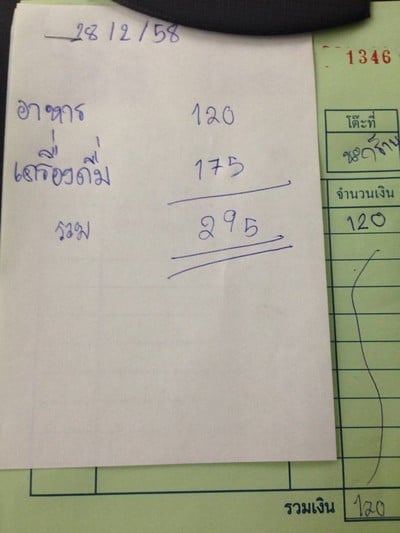 28/2/58
อาหาร 120
เครื่องดื่ม 175
รวม 295
1346
โต๊ะที่
จำนวนเงิน
120
รวมเงิน 120